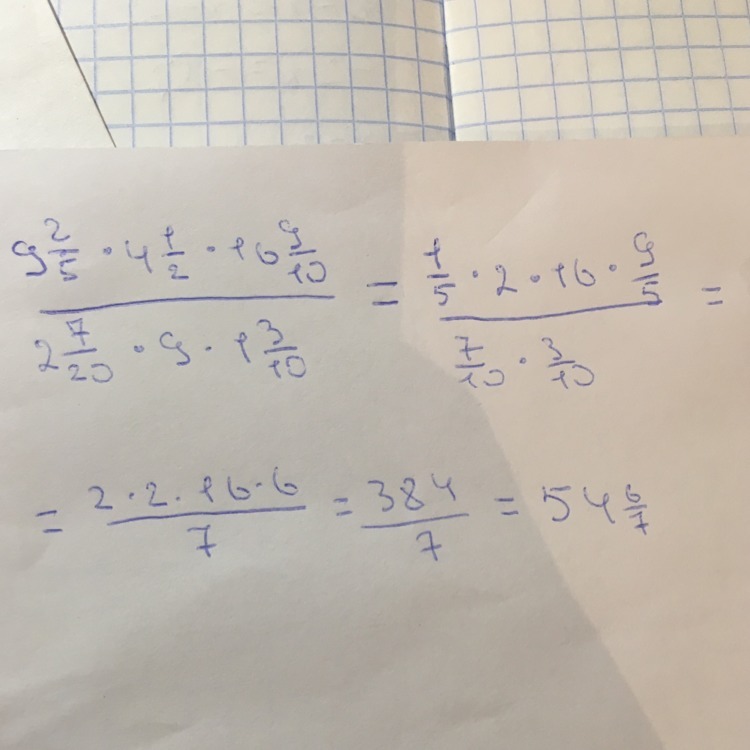 9 2/5 · 4 1/2 · 16 9/10 / 2 7/20 · 9 · 1 3/10 = 1/5 · 2 · 16 · 9/5 / 7/10 · 3/10 =
= 2 · 2 · 16 · 6 / 7 = 384 / 7 = 54 6/7